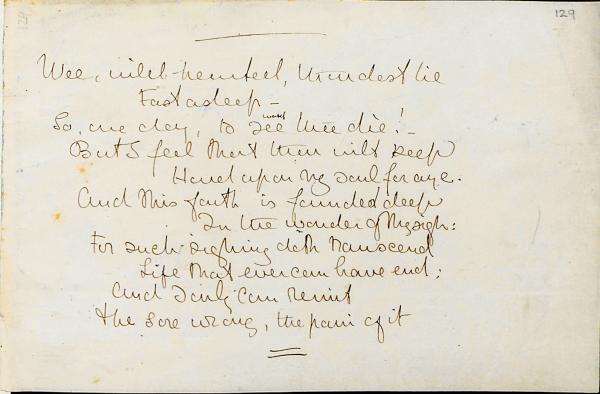 129
Wee, wild-hearted, thou dost lie
Fast asleep –
So, one day, to see thee die! –
But I feel that thou wilt keep
Hand upon my soul for aye.
And this faith is founded deep
In the wonder of thy sigh:
For such sighing doth transcend
Life that ever can have end;
And I only can remit
The sore wrong, the pain of it